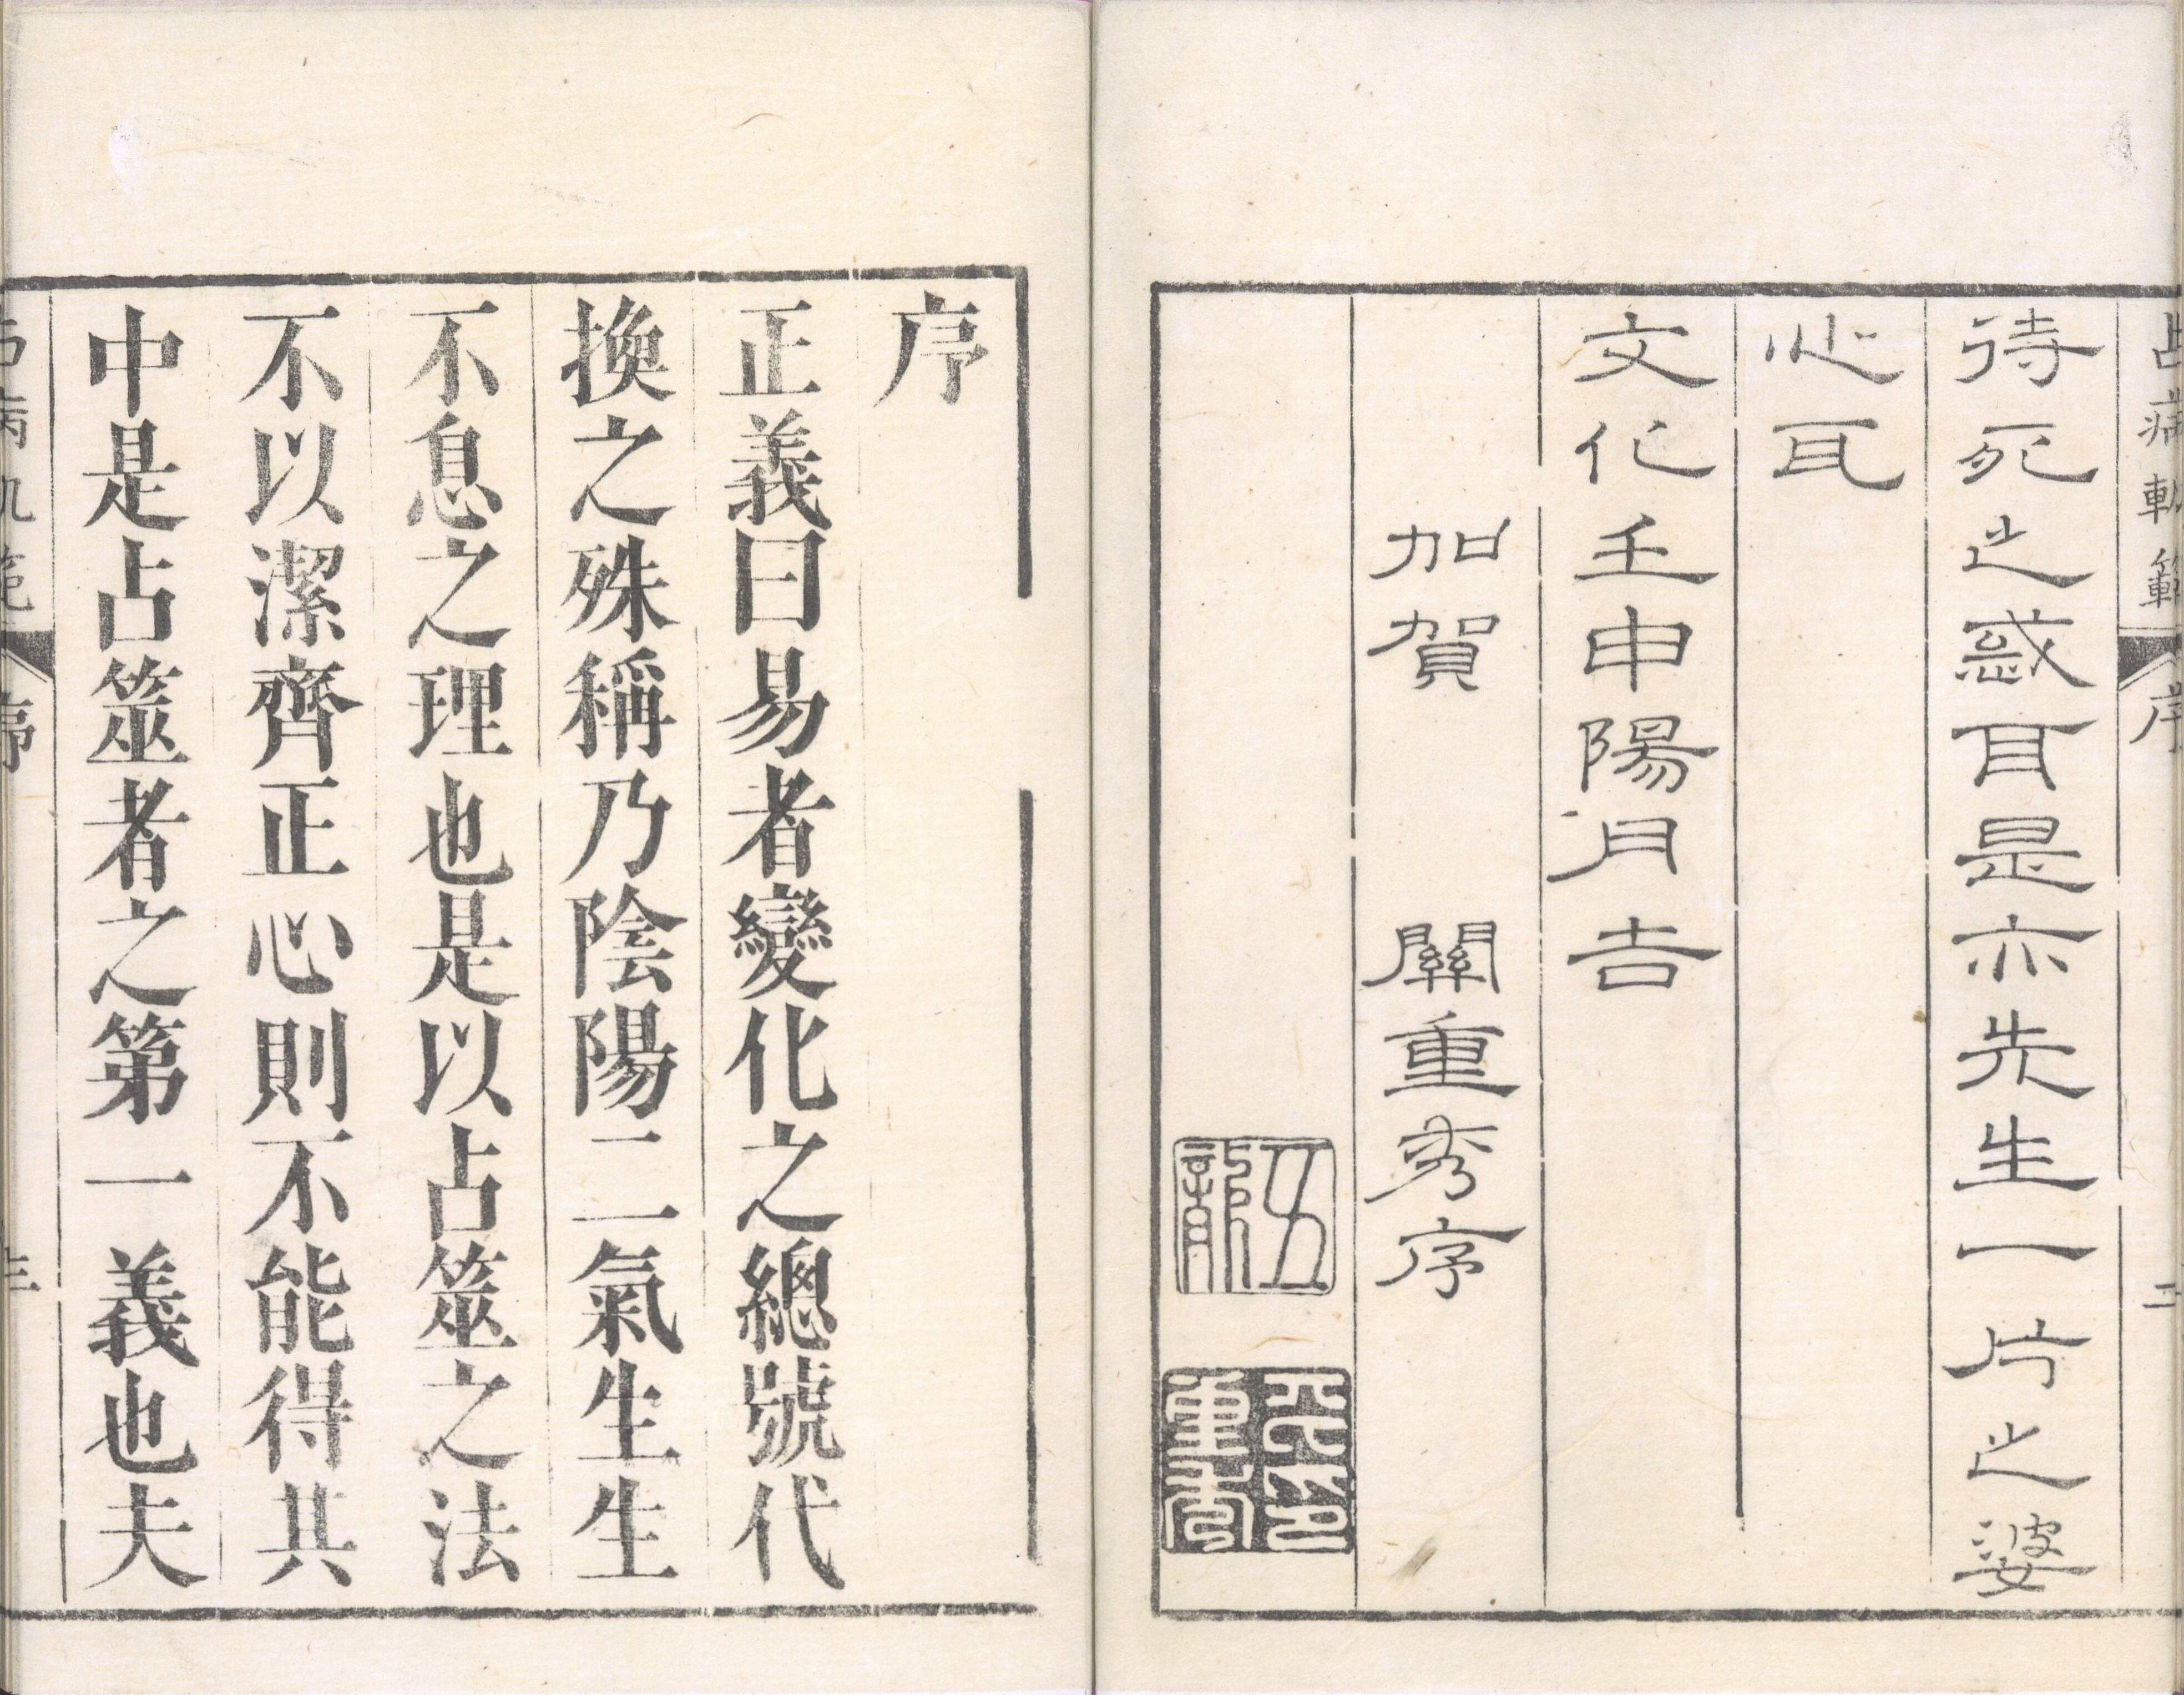 占病軌範 序 二
待死之惑耳是亦先生一片之婆
心耳
文化壬申陽月吉
加賀 關重秀序
序
正義曰易者變化之總號代
換之殊稱乃陰陽二氣生生
不息之理也是以占筮之法
不以潔齊正心則不能得其
中是占筮者之第一義也夫
占病軌範 序 三